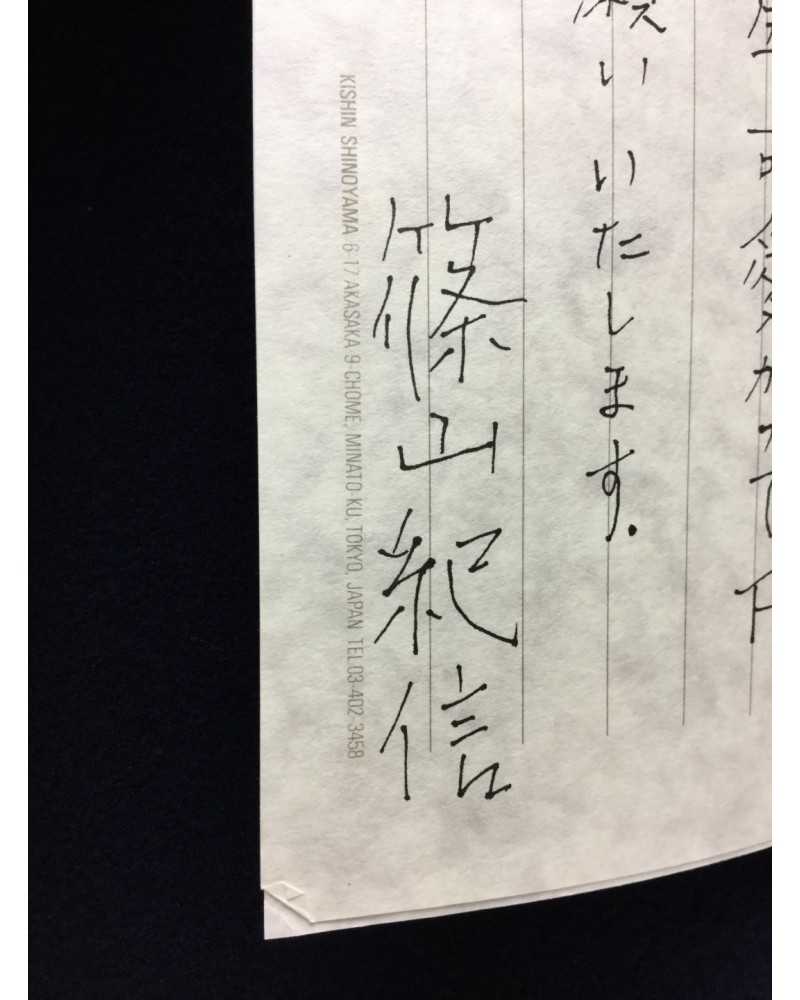 願いいたします.
篠山紀信
KISHIN SHINOYAMA 6-17 AKASAKA 9-CHOME, MINATO-KU, TOKYO, JAPAN TEL 03-402-3458